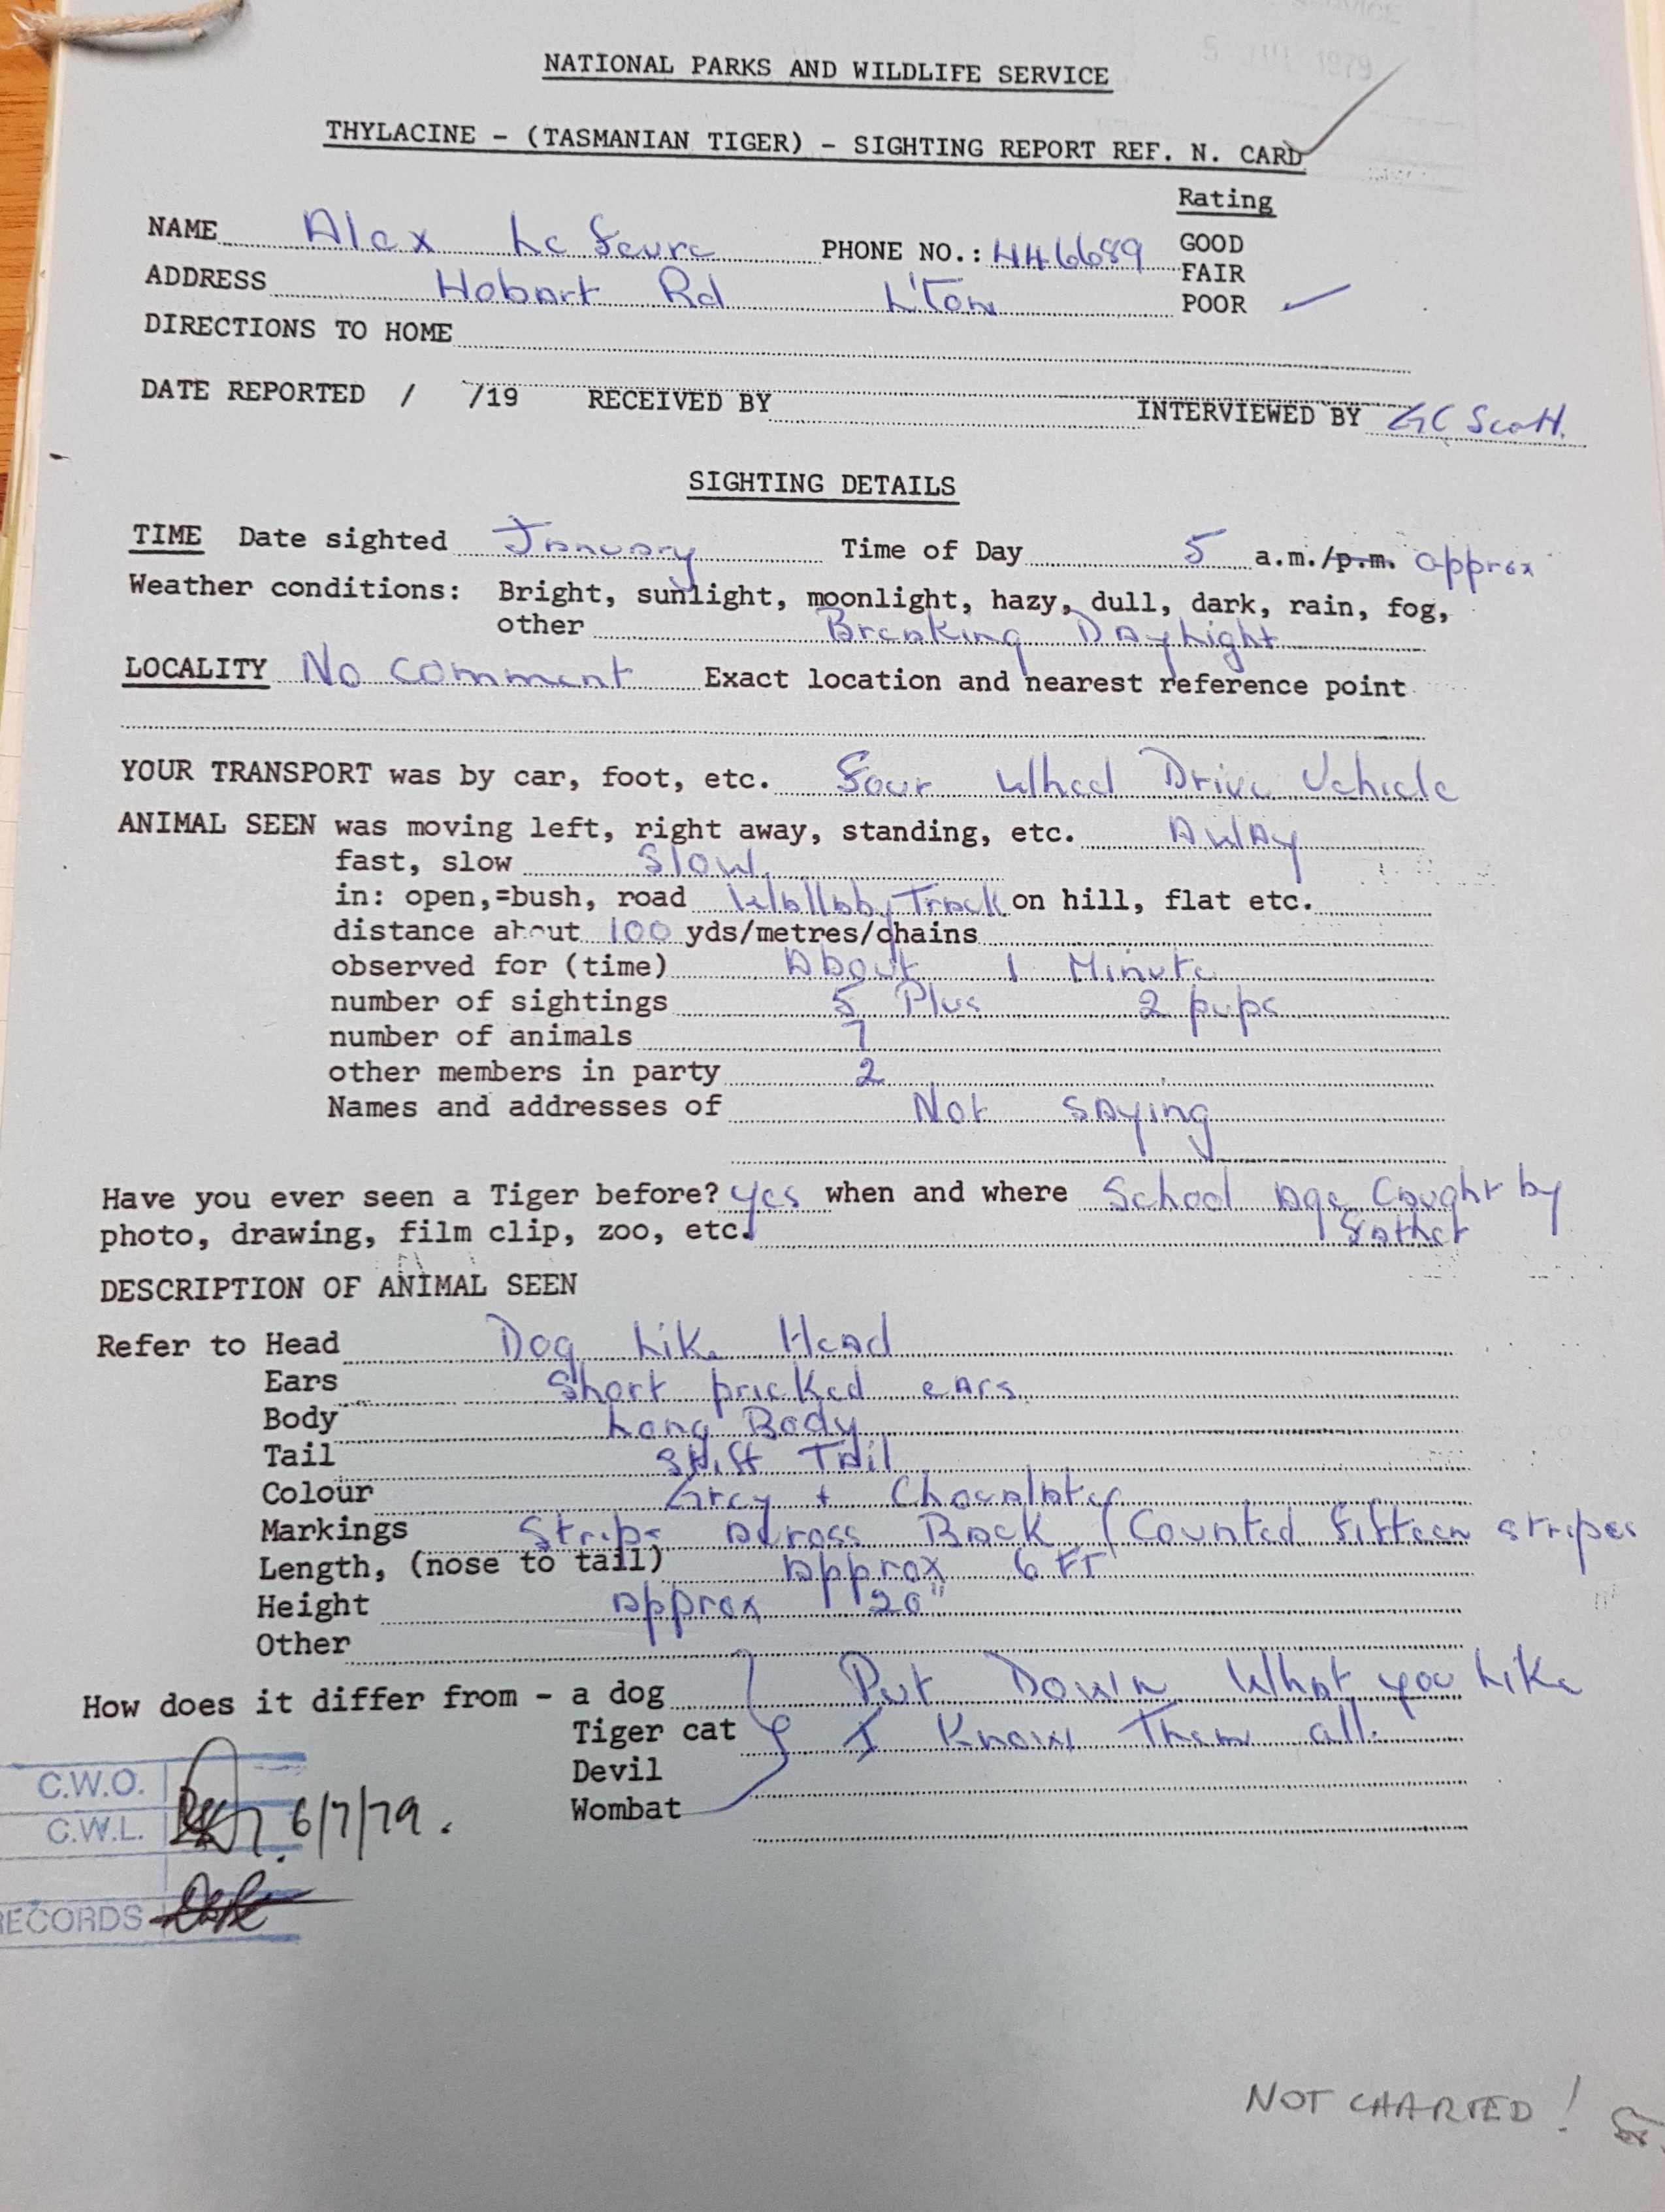 5 JUL 1979
NATIONAL PARKS AND WILDLIFE SERVICE
THYLACINE - (TASMANIAN TIGER) - SIGHTING REPORT REF. N. CARD
Rating
NAME Alex Le Fevre PHONE NO.: 446689 GOOD
FAIR
ADDRESS Hobart Rd L'Ton POOR ✓
DIRECTIONS TO HOME
DATE REPORTED / /19 RECEIVED BY INTERVIEWED BY GC Scott.
SIGHTING DETAILS
TIME Date sighted January Time of Day 5 a.m./p.m. approx
Weather conditions: Bright, sunlight, moonlight, hazy, dull, dark, rain, fog,
other Breaking DayLight
LOCALITY No comment Exact location and nearest reference point
YOUR TRANSPORT was by car, foot, etc. Four Wheel Drive Vehicle
ANIMAL SEEN was moving left, right away, standing, etc. AWAy
fast, slow Slow.
in: open,=bush, road Wallaby Track on hill, flat etc.
distance about 100 yds/metres/chains
observed for (time) About 1 Minute
number of sightings 5 Plus 2 pups
number of animals 7
other members in party 2
Names and addresses of Not saying
Have you ever seen a Tiger before? yes when and where School age Caught by
photo, drawing, film clip, zoo, etc. Father
DESCRIPTION OF ANIMAL SEEN
Refer to Head Dog Like Head
Ears Short pricked ears
Body Long Body
Tail Tail
Colour Grey + Chocolate
Markings across Back (Counted Fifteen stripes
Length, (nose to tail) approx 6 FT
Height approx 20"
Other
How does it differ from - a dog Put Down What you Like
Tiger cat I Know Them all.
Devil
Wombat
C.W.O.
C.W.L. 6/7/79.
RECORDS
NOT CHARTED!